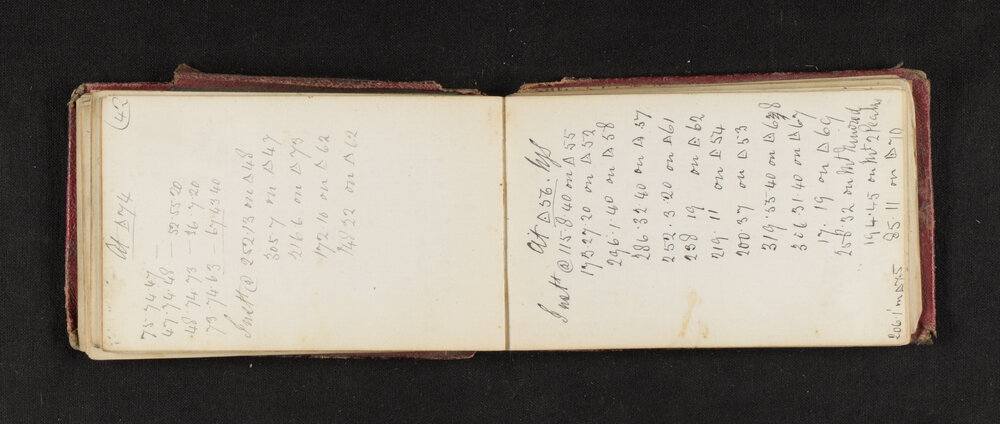 (42
At △74
75·74 47 —
47·74·48 — 52·55·20
48·74 73 — 36·7·20
73·74 63 — 67·43 40
Inst @ 252·13 on △48
305 7 on △47
216·6 on △73
172·10 on △62
142·22 on △62
At △56.
Inst @ 115·8·40 on △55
173·27·20 on △52
296·1·40 on △58
286·32·40 on △57
252·3·20 on △61
238 19 on △62
219·11 on △54
200 37 on △53
319·53·40 on △68
306·31·40 on △67
17·19 on △69
258·32 on Mt
194·45 on Mt 2 Peaks
85·11 on △70
206·1 on △75